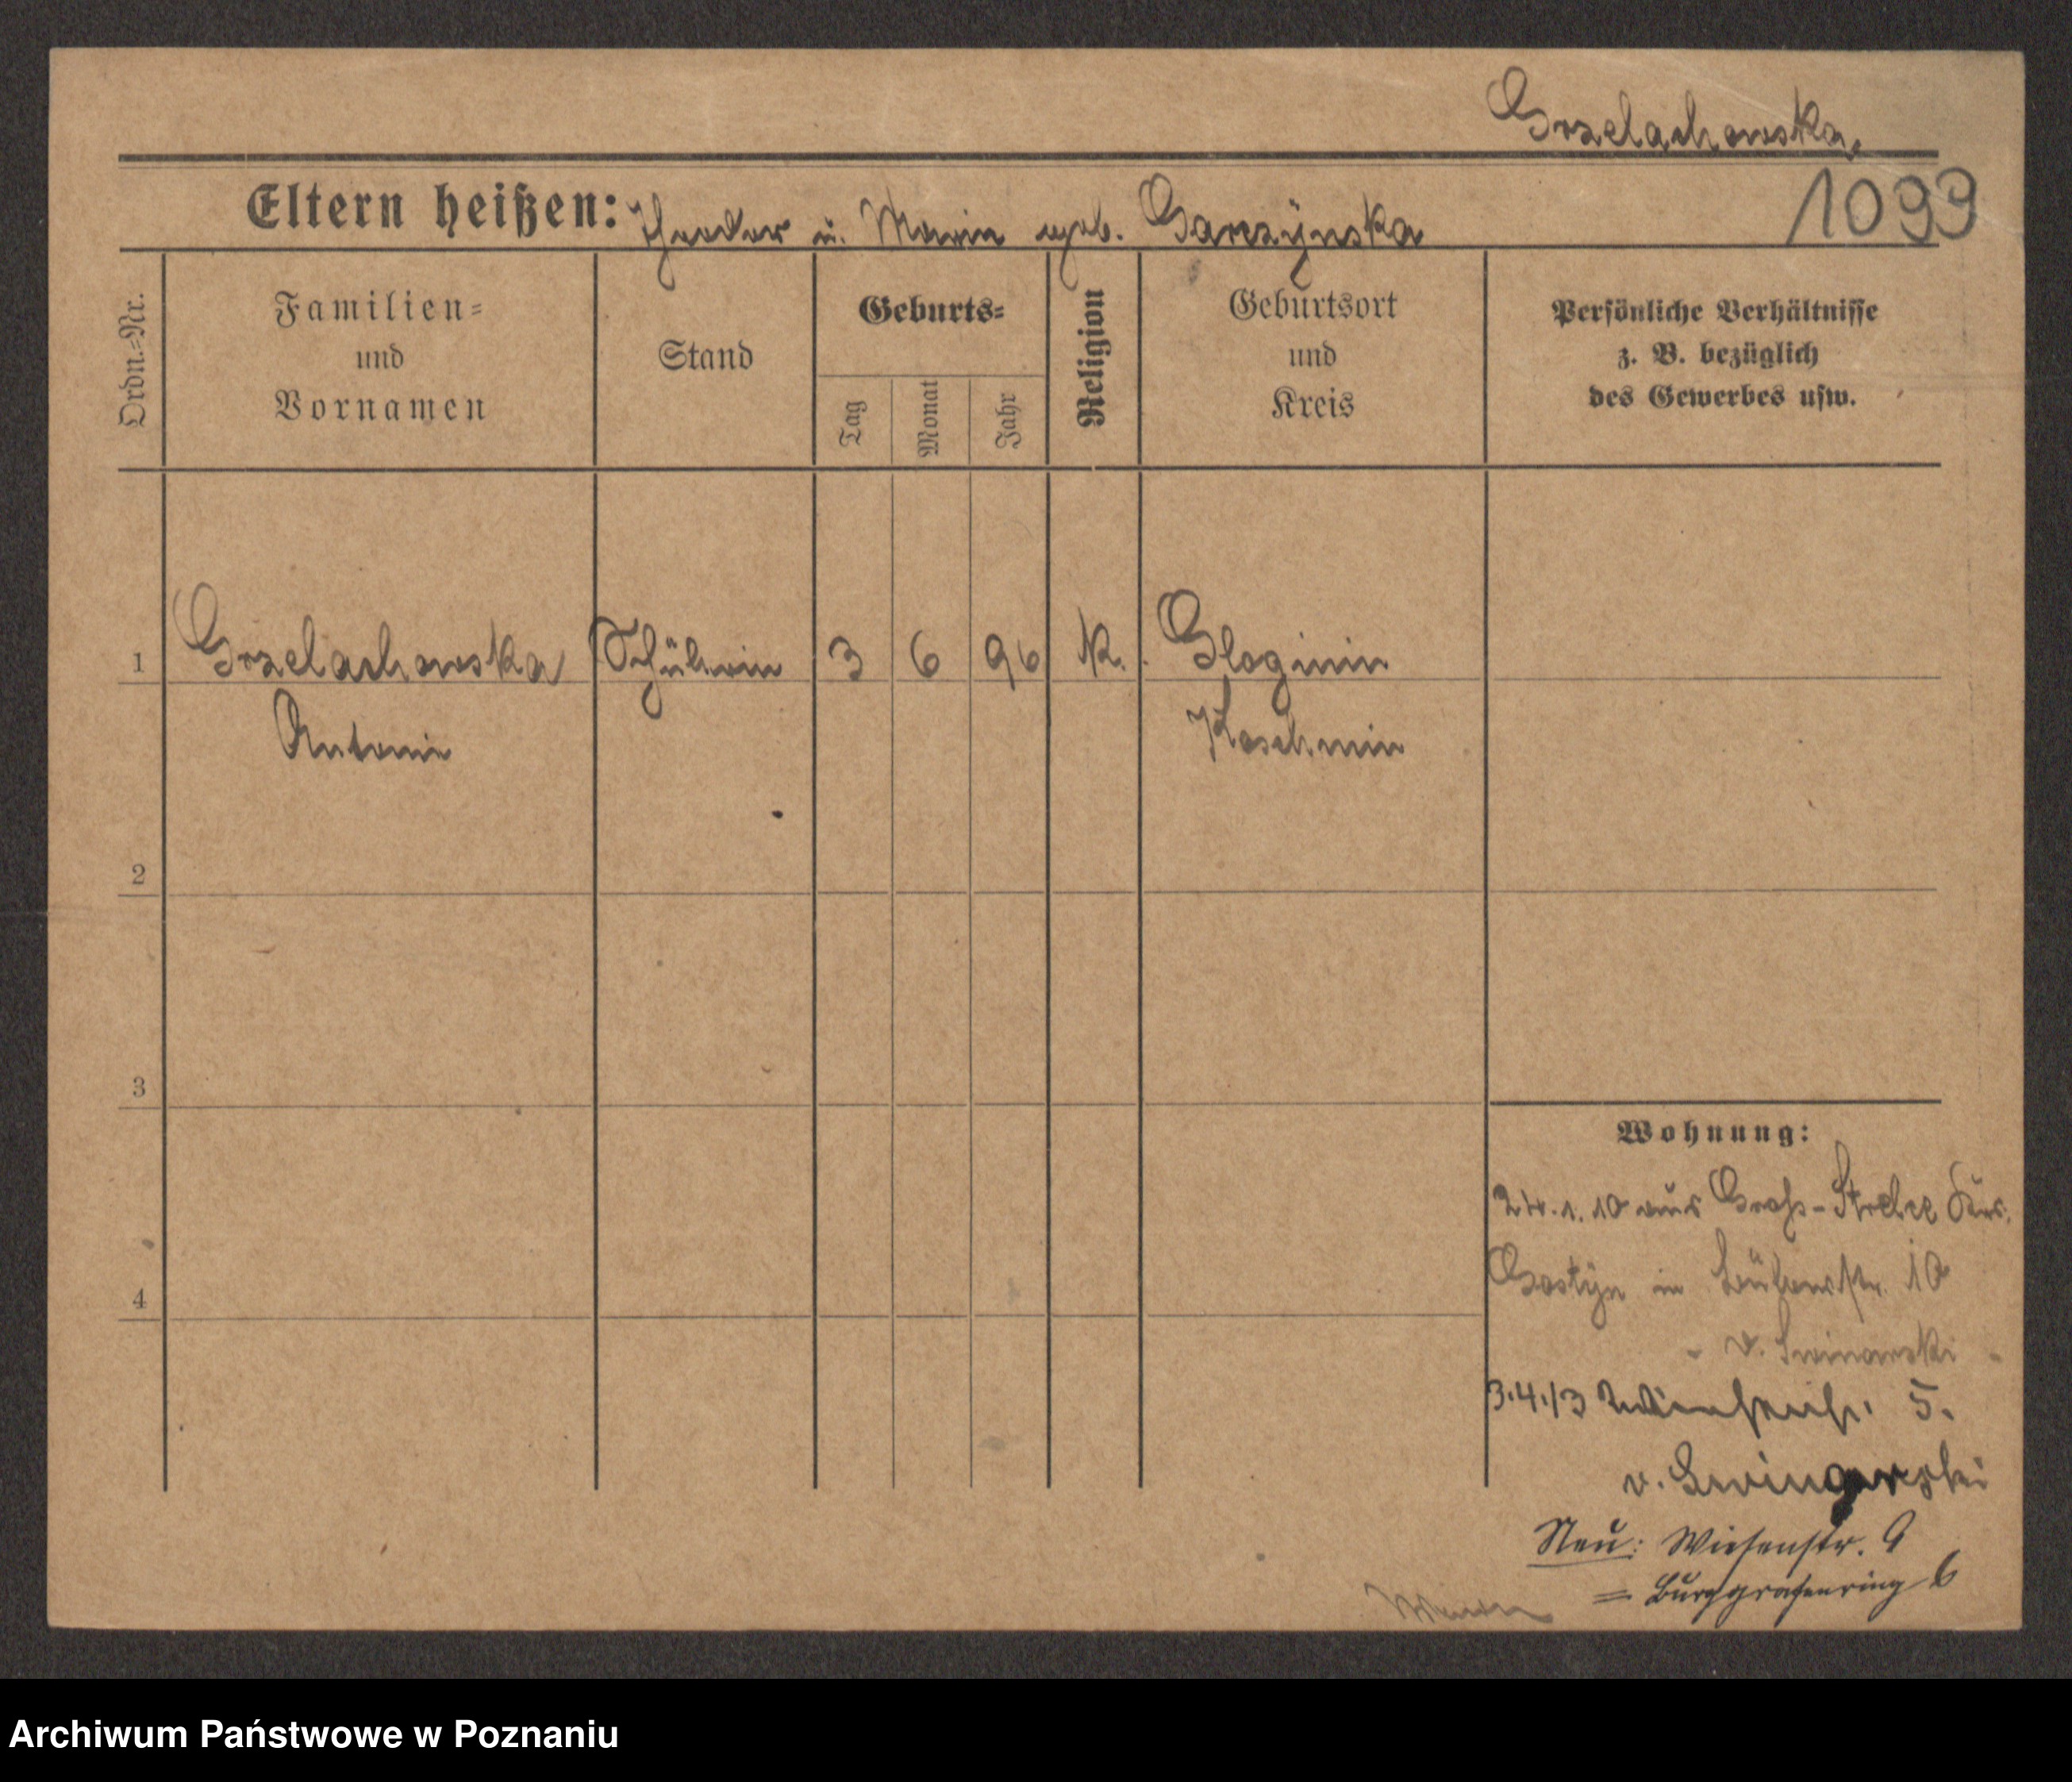 Grzelachowska
Eltern heißen: Theodor u. Maria geb. Garczynska
1099
Ordn.=Nr.
Familien=
und
Vornamen
Stand
Geburts=
Tag
Monat
Jahr
Religion
Geburtsort
und
Kreis
Persönliche Verhältnisse
z. B. bezüglich
des Gewerbes usw.
1 Grzelachowska Schülerin 3 6 96 K. Gloginin
Antonie Koschmin
2
3
4
Wohnung:
24.1.10 aus Groß-Strelce Krs.
Gostyn in 10
- v. Swinarski -
3.4.13 5.
v. Swinarski
Neu: Wiesenstr. 9
= Burggrafenring 6
Archiwum Państwowe w Poznaniu